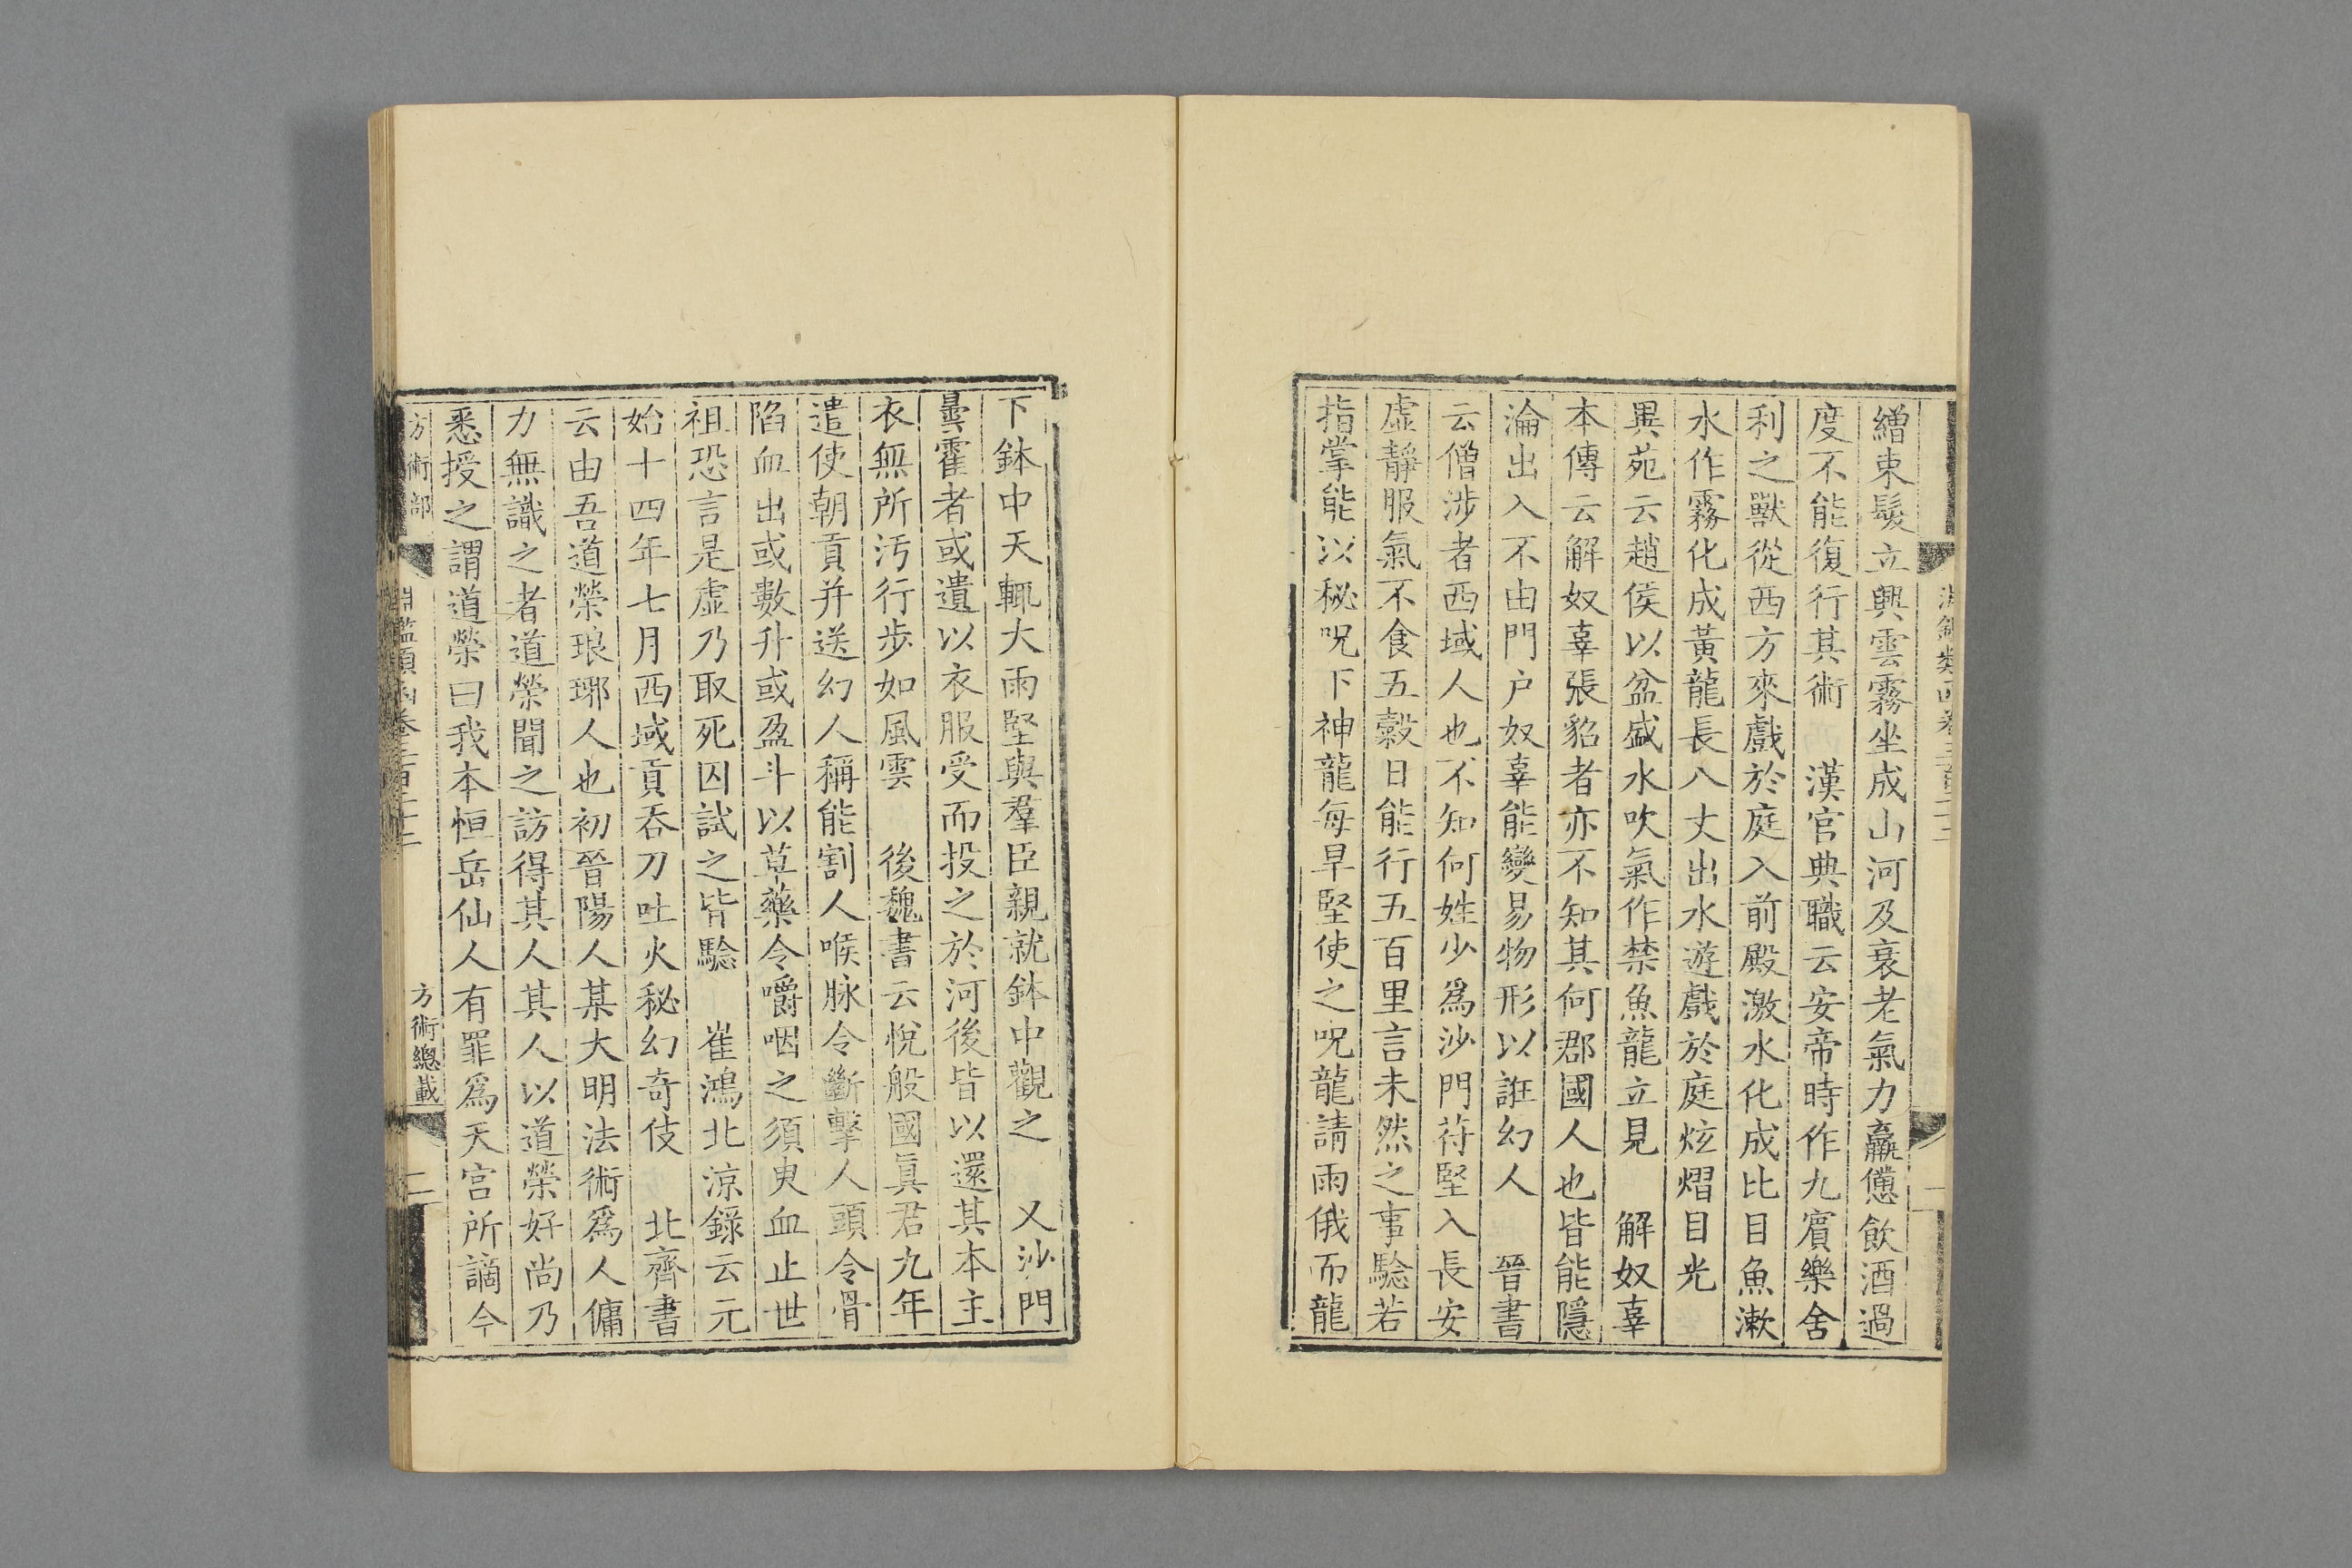 繒束髮立興雲霧坐成山河及衰老氣力羸憊飲酒過
度不能復行其術　漢官典職云安帝時作九賓樂舍
利之獸從西方來戲於庭入前殿激水化成比目魚漱
水作霧化成黃龍長八丈出水遊戲於庭炫熠目光
異苑云趙侯以盆盛水吹氣作禁魚龍立見　解奴辜
本傳云解奴辜張貂者亦不知其何郡國人也皆能隱
淪出入不由門户奴辜能變易物形以誑幻人　晉書
云僧涉者西域人也不知何姓少爲沙門苻堅入長安
虛靜服氣不食五糓日能行五百里言未然之事驗若
指掌能以秘呪下神龍每旱堅使之呪龍請雨俄而龍
下鉢中天輒大雨堅與羣臣親就鉢中觀之　又沙門
曇霍者或遺以衣服受而投之於河後皆以還其本主
衣無所汚行步如風雲　後魏書云悅般國眞君九年
遣使朝貢并送幻人稱能割人喉脉令斷擊人頭令骨
陷血出或數升或盈斗以草藥令嚼咽之須臾血止世
祖恐言是虛乃取死囚試之皆驗　崔鴻北涼錄云元
始十四年七月西域貢吞刀吐火秘幻奇伎　北齊書
云由吾道榮琅琊人也初晉陽人某大明法術爲人傭
力無識之者道榮聞之訪得其人其人以道榮好尚乃
悉授之謂道榮曰我本恒岳仙人有罪爲天宮所謫今
方術部　淵鑑類函卷三百二十二　方術總載　二